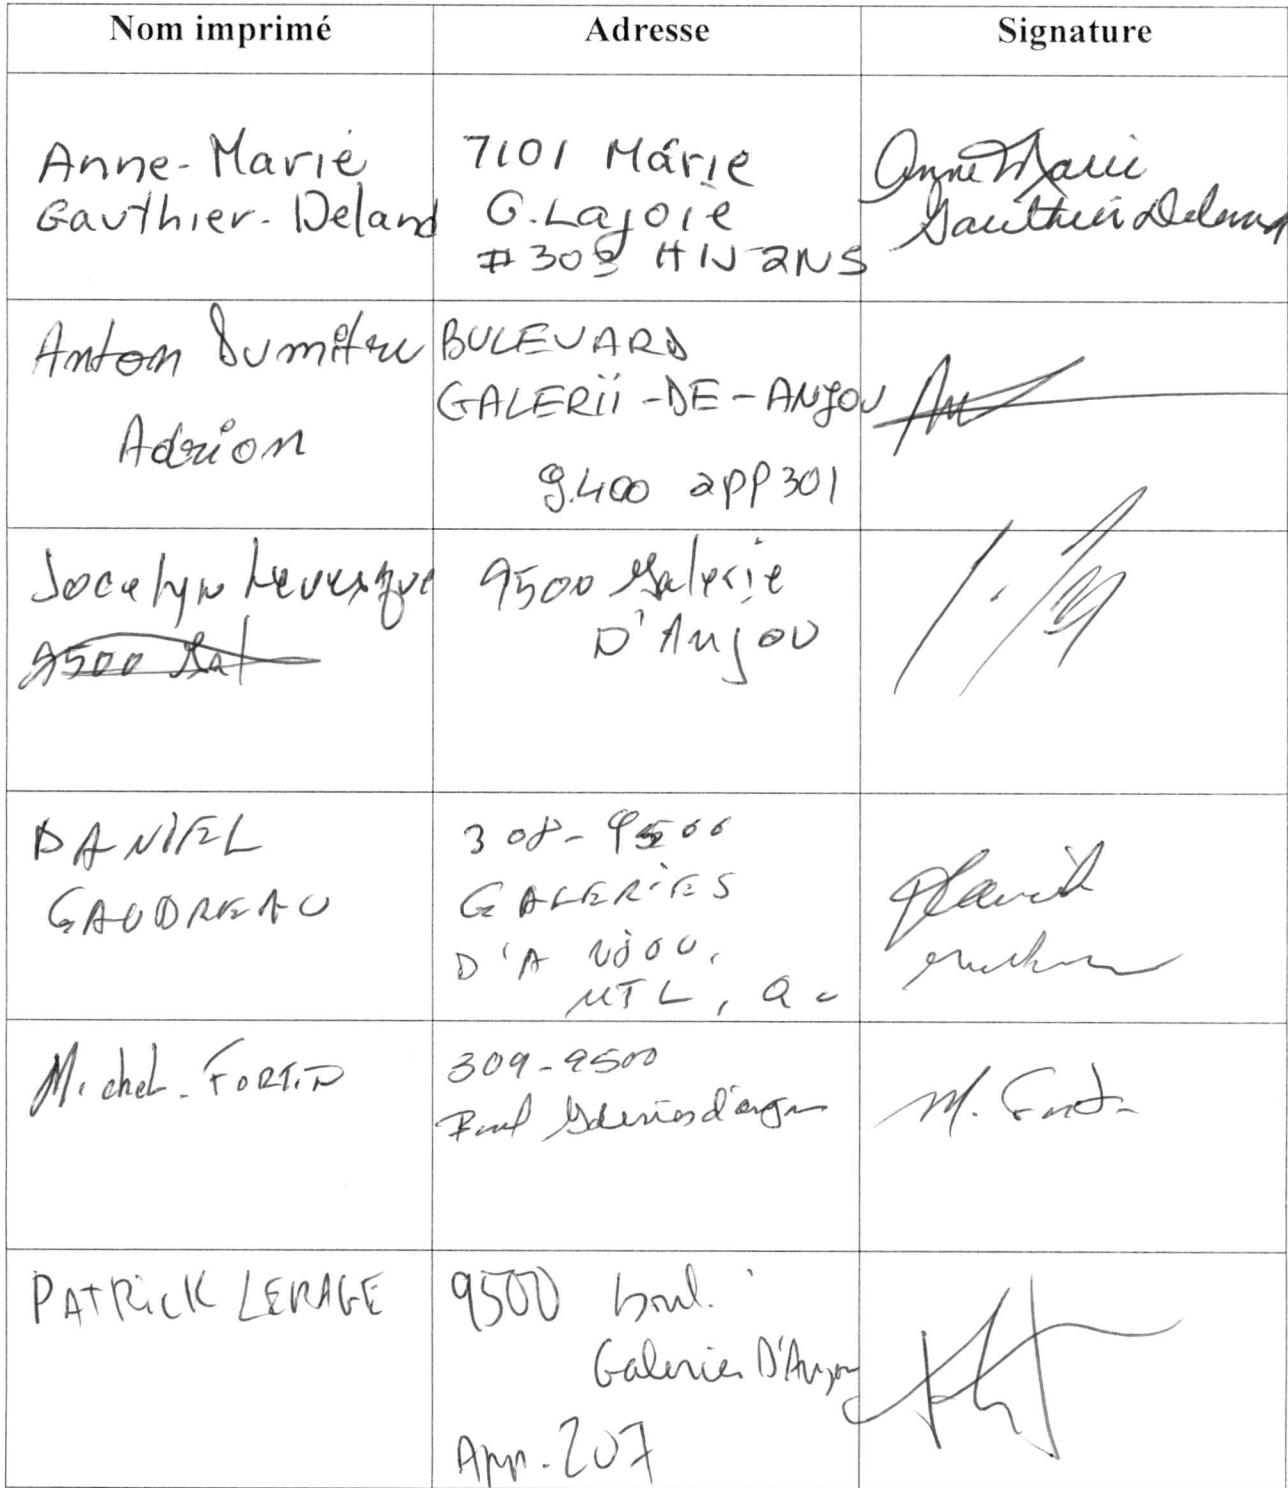 Nom imprimé
Adresse
Signature
Anne-Marie
Gauthier-Deland
7101 Marie
G. Lajoie
#309 H1J 2N5
Anne Marie
Gauthier Deland
Anton Dumitru
Adrian
BULEVARD
GALERii-DE-ANJOU
9.400 app 301
Jocelyn Levesque
9500 Gal
9500 Galerie
D'Anjou
DANIEL
GAUDREAU
308-9500
GALERIES
D'ANJOU,
MTL, Qc
Michel FORTIN
309-9500
Boul Galeries d'anjou
M. Fortin
PATRICK LEPAGE
9500 boul.
Galeries D'Anjou
App. 207